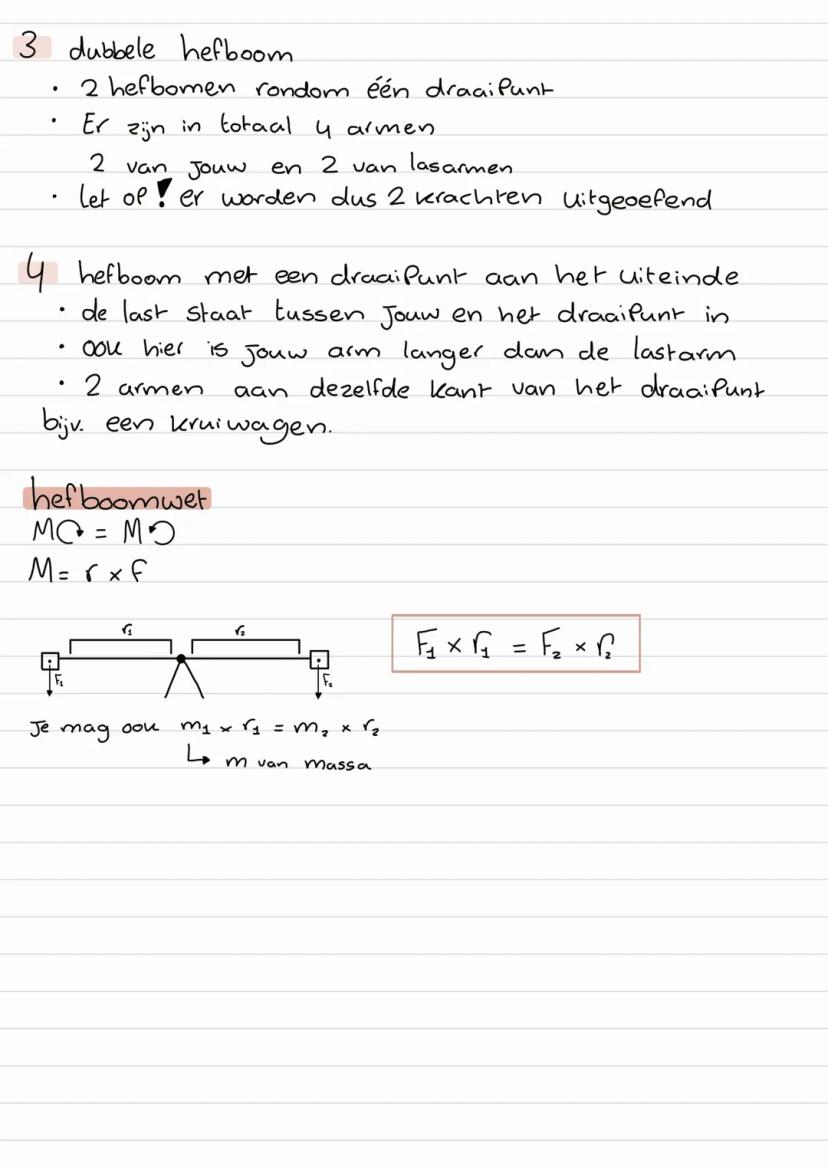 3 dubbele hefboom
· 2 hefbomen rondom één draaipunt
· Er zijn in totaal 4 armen
2 van jouw en 2 van lasarmen
· Let op! er worden dus 2 krachten uitgeoefend
4 hefboom met een draaipunt aan het uiteinde
· de last staat tussen jouw en het draaipunt in
· ook hier is jouw arm langer dan de lastarm
· 2 armen aan dezelfde kant van het draaipunt
bijv. een kruiwagen.
hefboomwet
M↻ = M↺
M = r × f
r₁ r₂
F₁ F₂
F₁ × r₁ = F₂ × r₂
Je mag ook m₁ × r₁ = m₂ × r₂
↳ m van massa